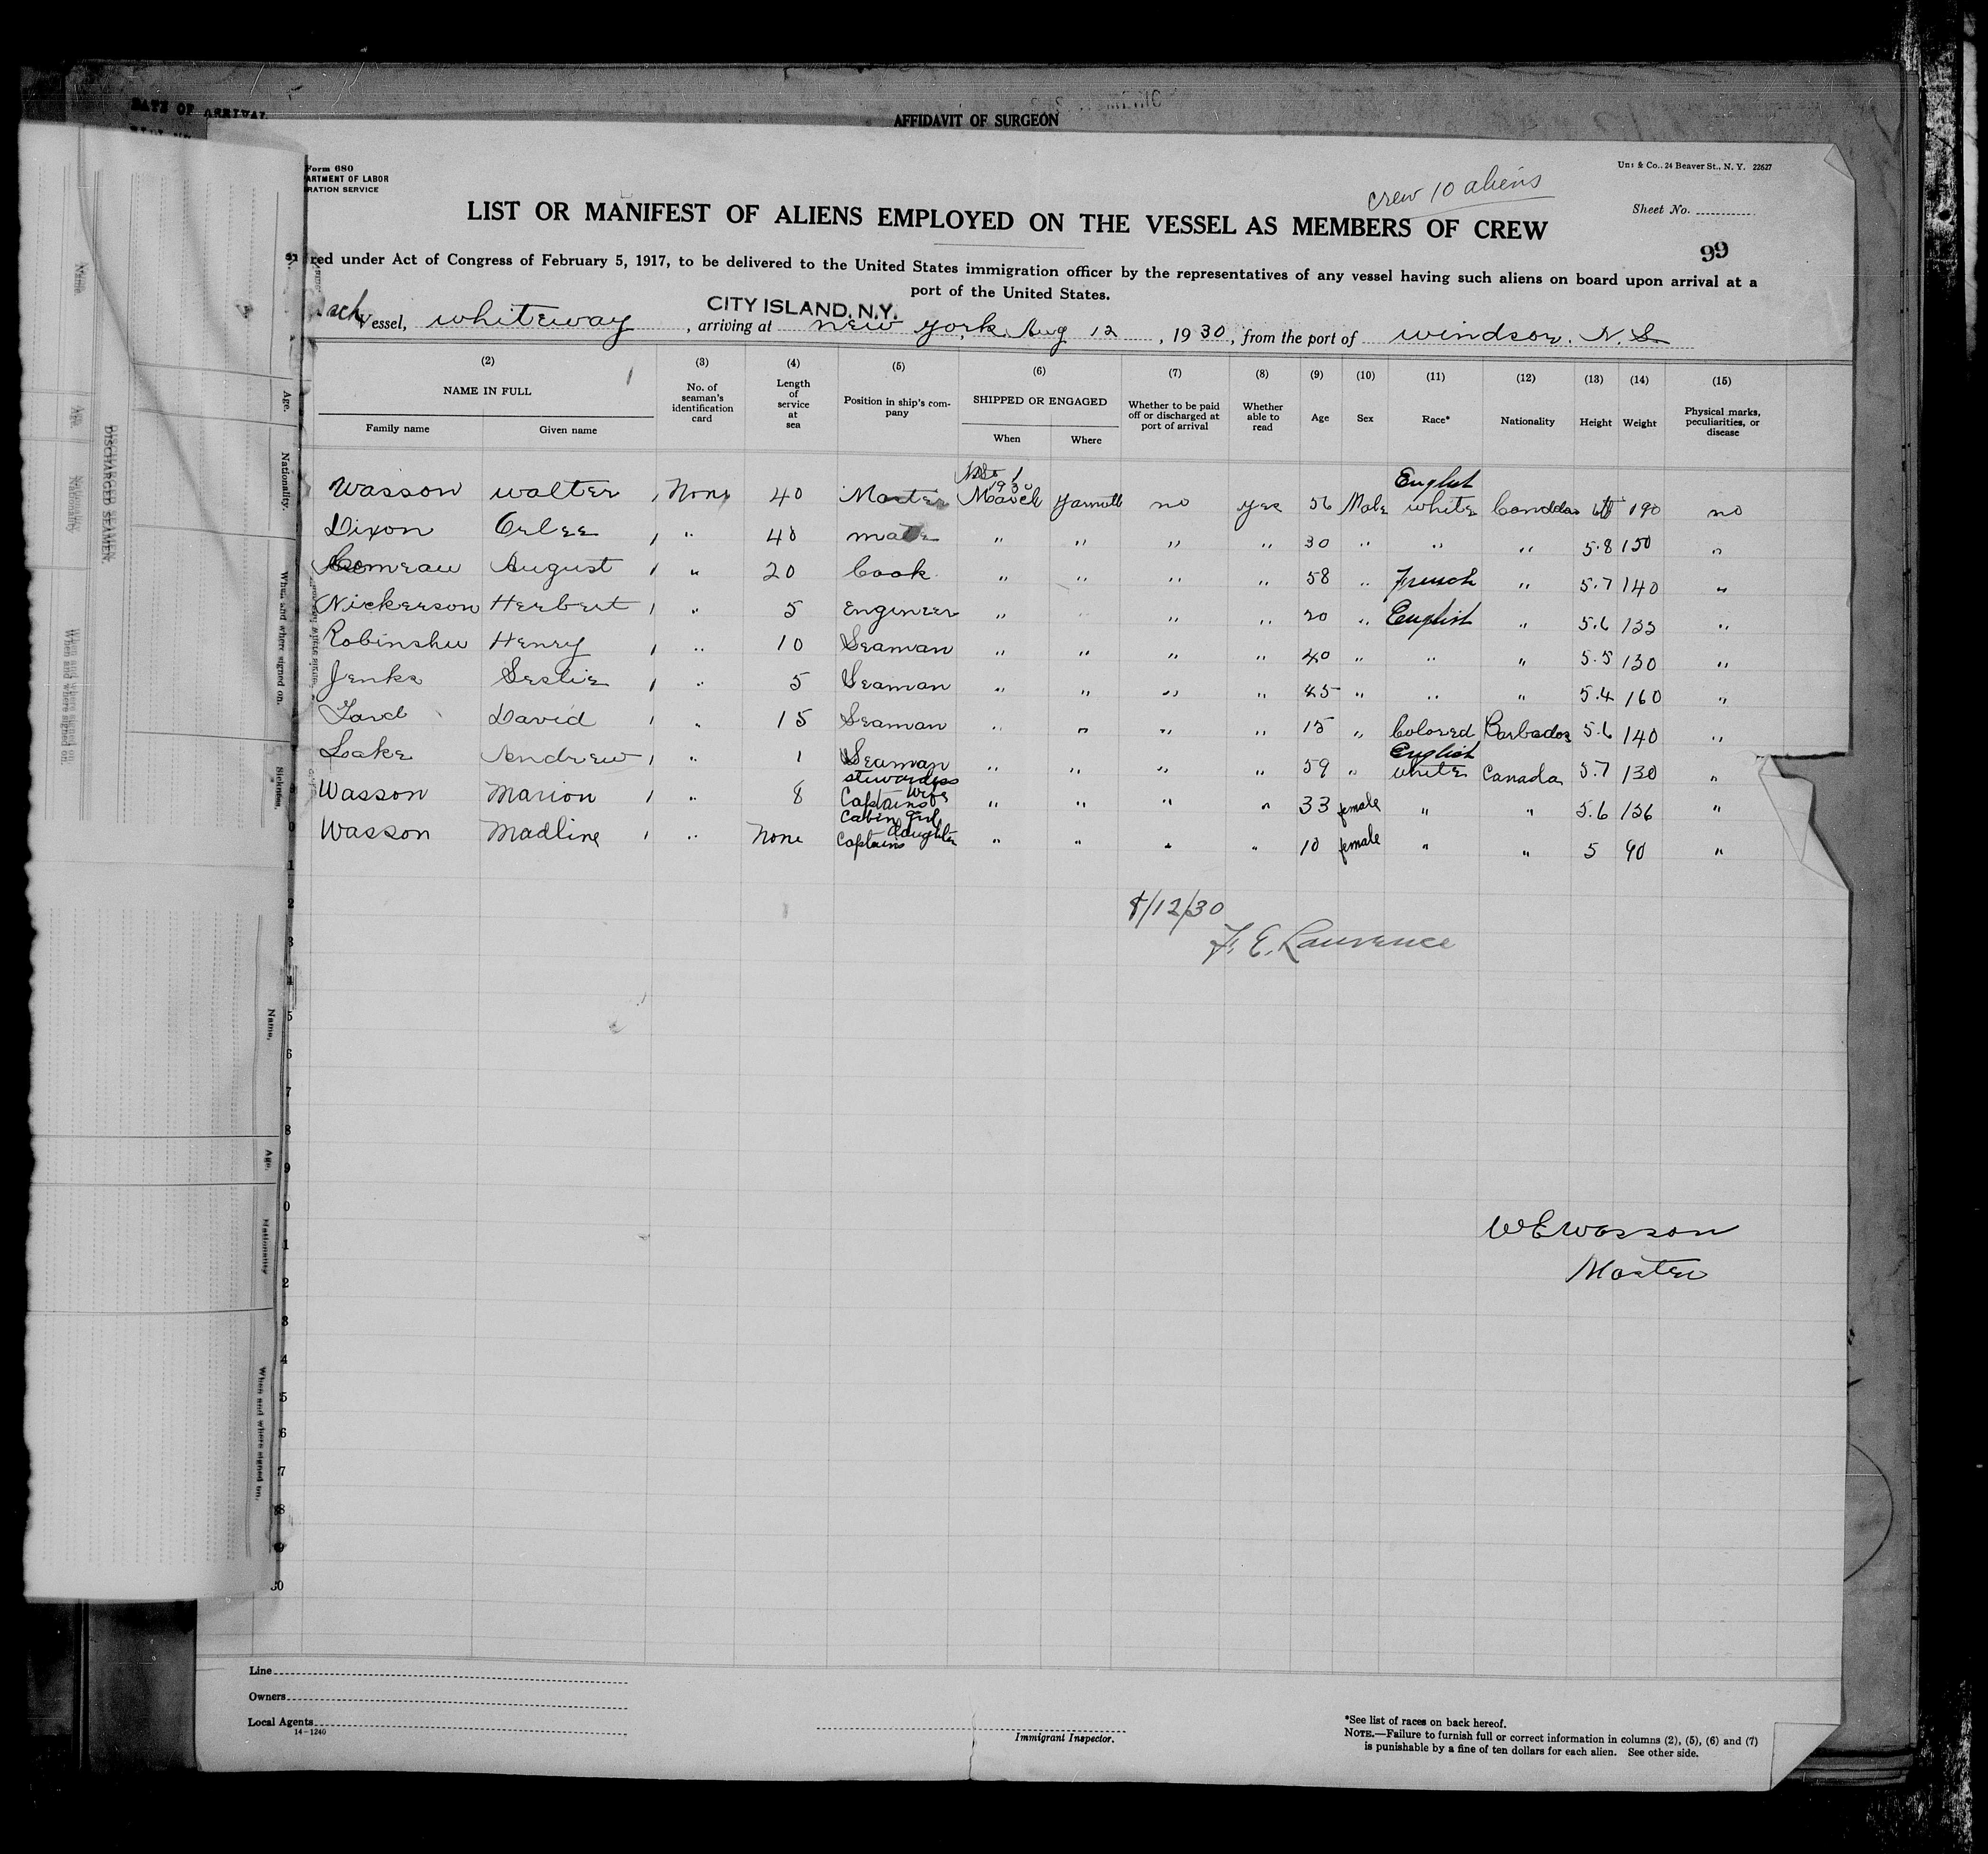 DATE OF ARRIVAL
AFFIDAVIT OF SURGEON
Form 680
ARTMENT OF LABOR
RATION SERVICE
Uns & Co., 24 Beaver St., N. Y. 22627
crew 10 aliens
Sheet No.
LIST OR MANIFEST OF ALIENS EMPLOYED ON THE VESSEL AS MEMBERS OF CREW
99
red under Act of Congress of February 5, 1917, to be delivered to the United States immigration officer by the representatives of any vessel having such aliens on board upon arrival at a
port of the United States.
CITY ISLAND, N.Y.
Vessel, whiteway, arriving at new york, Aug 12, 1930, from the port of windson. N. S
(2) (3) (4) (5) (6) (7) (8) (9) (10) (11) (12) (13) (14) (15)
NAME IN FULL
Family name Given name
No. of seaman's identification card
Length of service at sea
Position in ship's company
SHIPPED OR ENGAGED
When Where
Whether to be paid off or discharged at port of arrival
Whether able to read
Age Sex Race* Nationality Height Weight
Physical marks, peculiarities, or disease
1930 English
Wasson walter None 40 Master March Yarmouth no yes 56 Male white 190 no
Dixon 40 mate " " " " 30 " " " 5.8 150 "
Comeau August " 20 Cook " " " " 58 " French " 5.7 140 "
Nickerson Herbert " 5 Engineer " " " 20 " English " 5.6 135 "
Robinshw Henry " 10 Seaman " " " " 40 " " " 5.5 130 "
Jenks Leslie " 5 Seaman " " " " 45 " " " 5.4 160 "
David " 15 Seaman " " " " 15 " Colored Barbados 5.6 140 "
English
Lake Andrew " 1 Seaman " " " " 59 " white Canada 5.7 130 "
stewardess
Wasson Marion " 8 Captains wife " " " " 33 female " " 5.6 136 "
Cabin Girl
Wasson Madline " None Captains daughter " " " " 10 female " " 5 90 "
8/12/30
F. E. Lawrence
W E Wasson
Master
Line
Owners
Local Agents
14-1240
Immigrant Inspector.
*See list of races on back hereof.
NOTE.—Failure to furnish full or correct information in columns (2), (5), (6) and (7)
is punishable by a fine of ten dollars for each alien. See other side.
DISCHARGED SEAMEN.
Name
Age.
Nationality.
When and where signed on.
Name.
Age.
Nationality
When and where signed on.